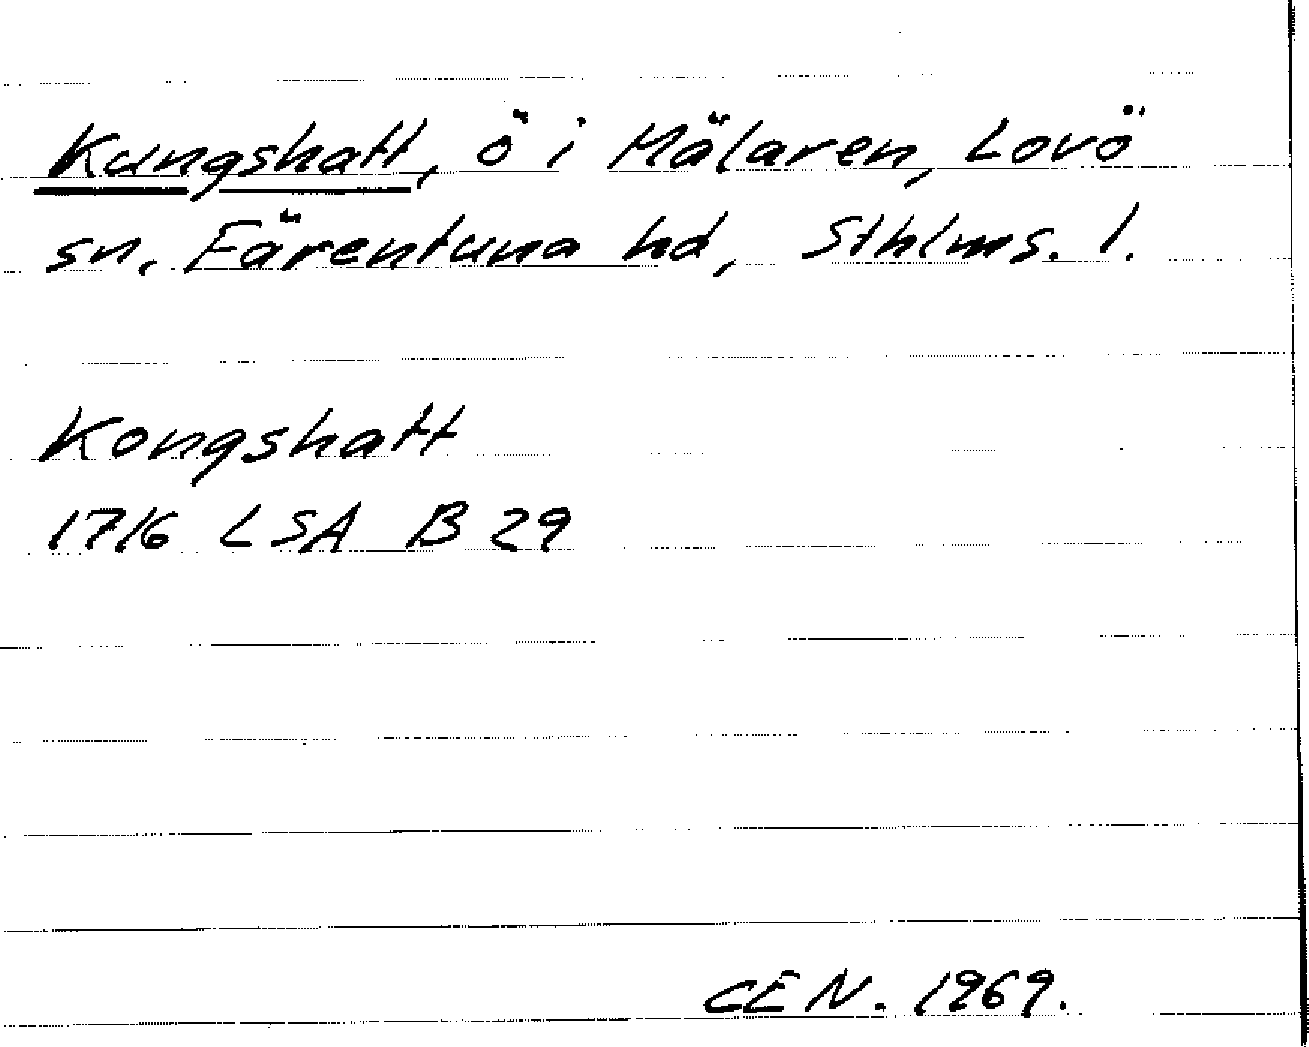 Kungshatt, ö i Mälaren, Lovö
sn, Färentuna hd, Sthlms. l.
Kongshatt
1716 LSA B 29
CEN. 1969.